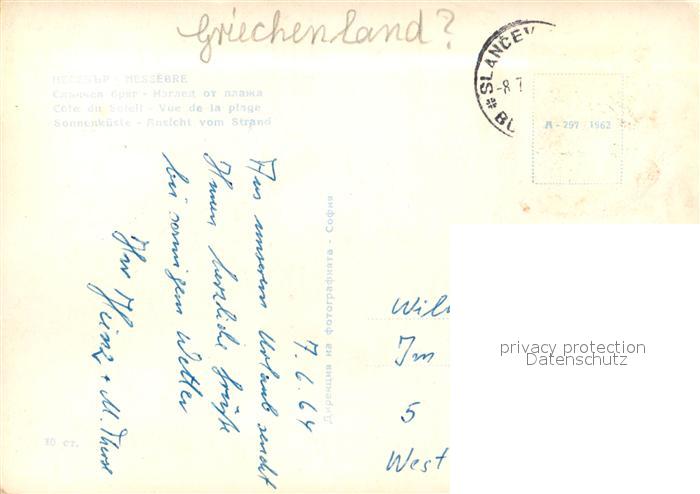 Griechenland?
НЕСЕБЪР - MESSEBRE
Слънчев бряг - Изглед от плажа
Côte du Soleil - Vue de la plage
Sonnenküste - Ansicht vom Strand
*SLANČEV
-8.7
BU
А - 297 - 1962
7.6.64
Aus unserem Urlaub sendet
Ihnen herzliche Grüße
bei sonnigem Wetter
Ihr Heinz + M. Therese
Дирекция на фотографията - София
Wil
Im
5
West
10 ст.
privacy protection
Datenschutz